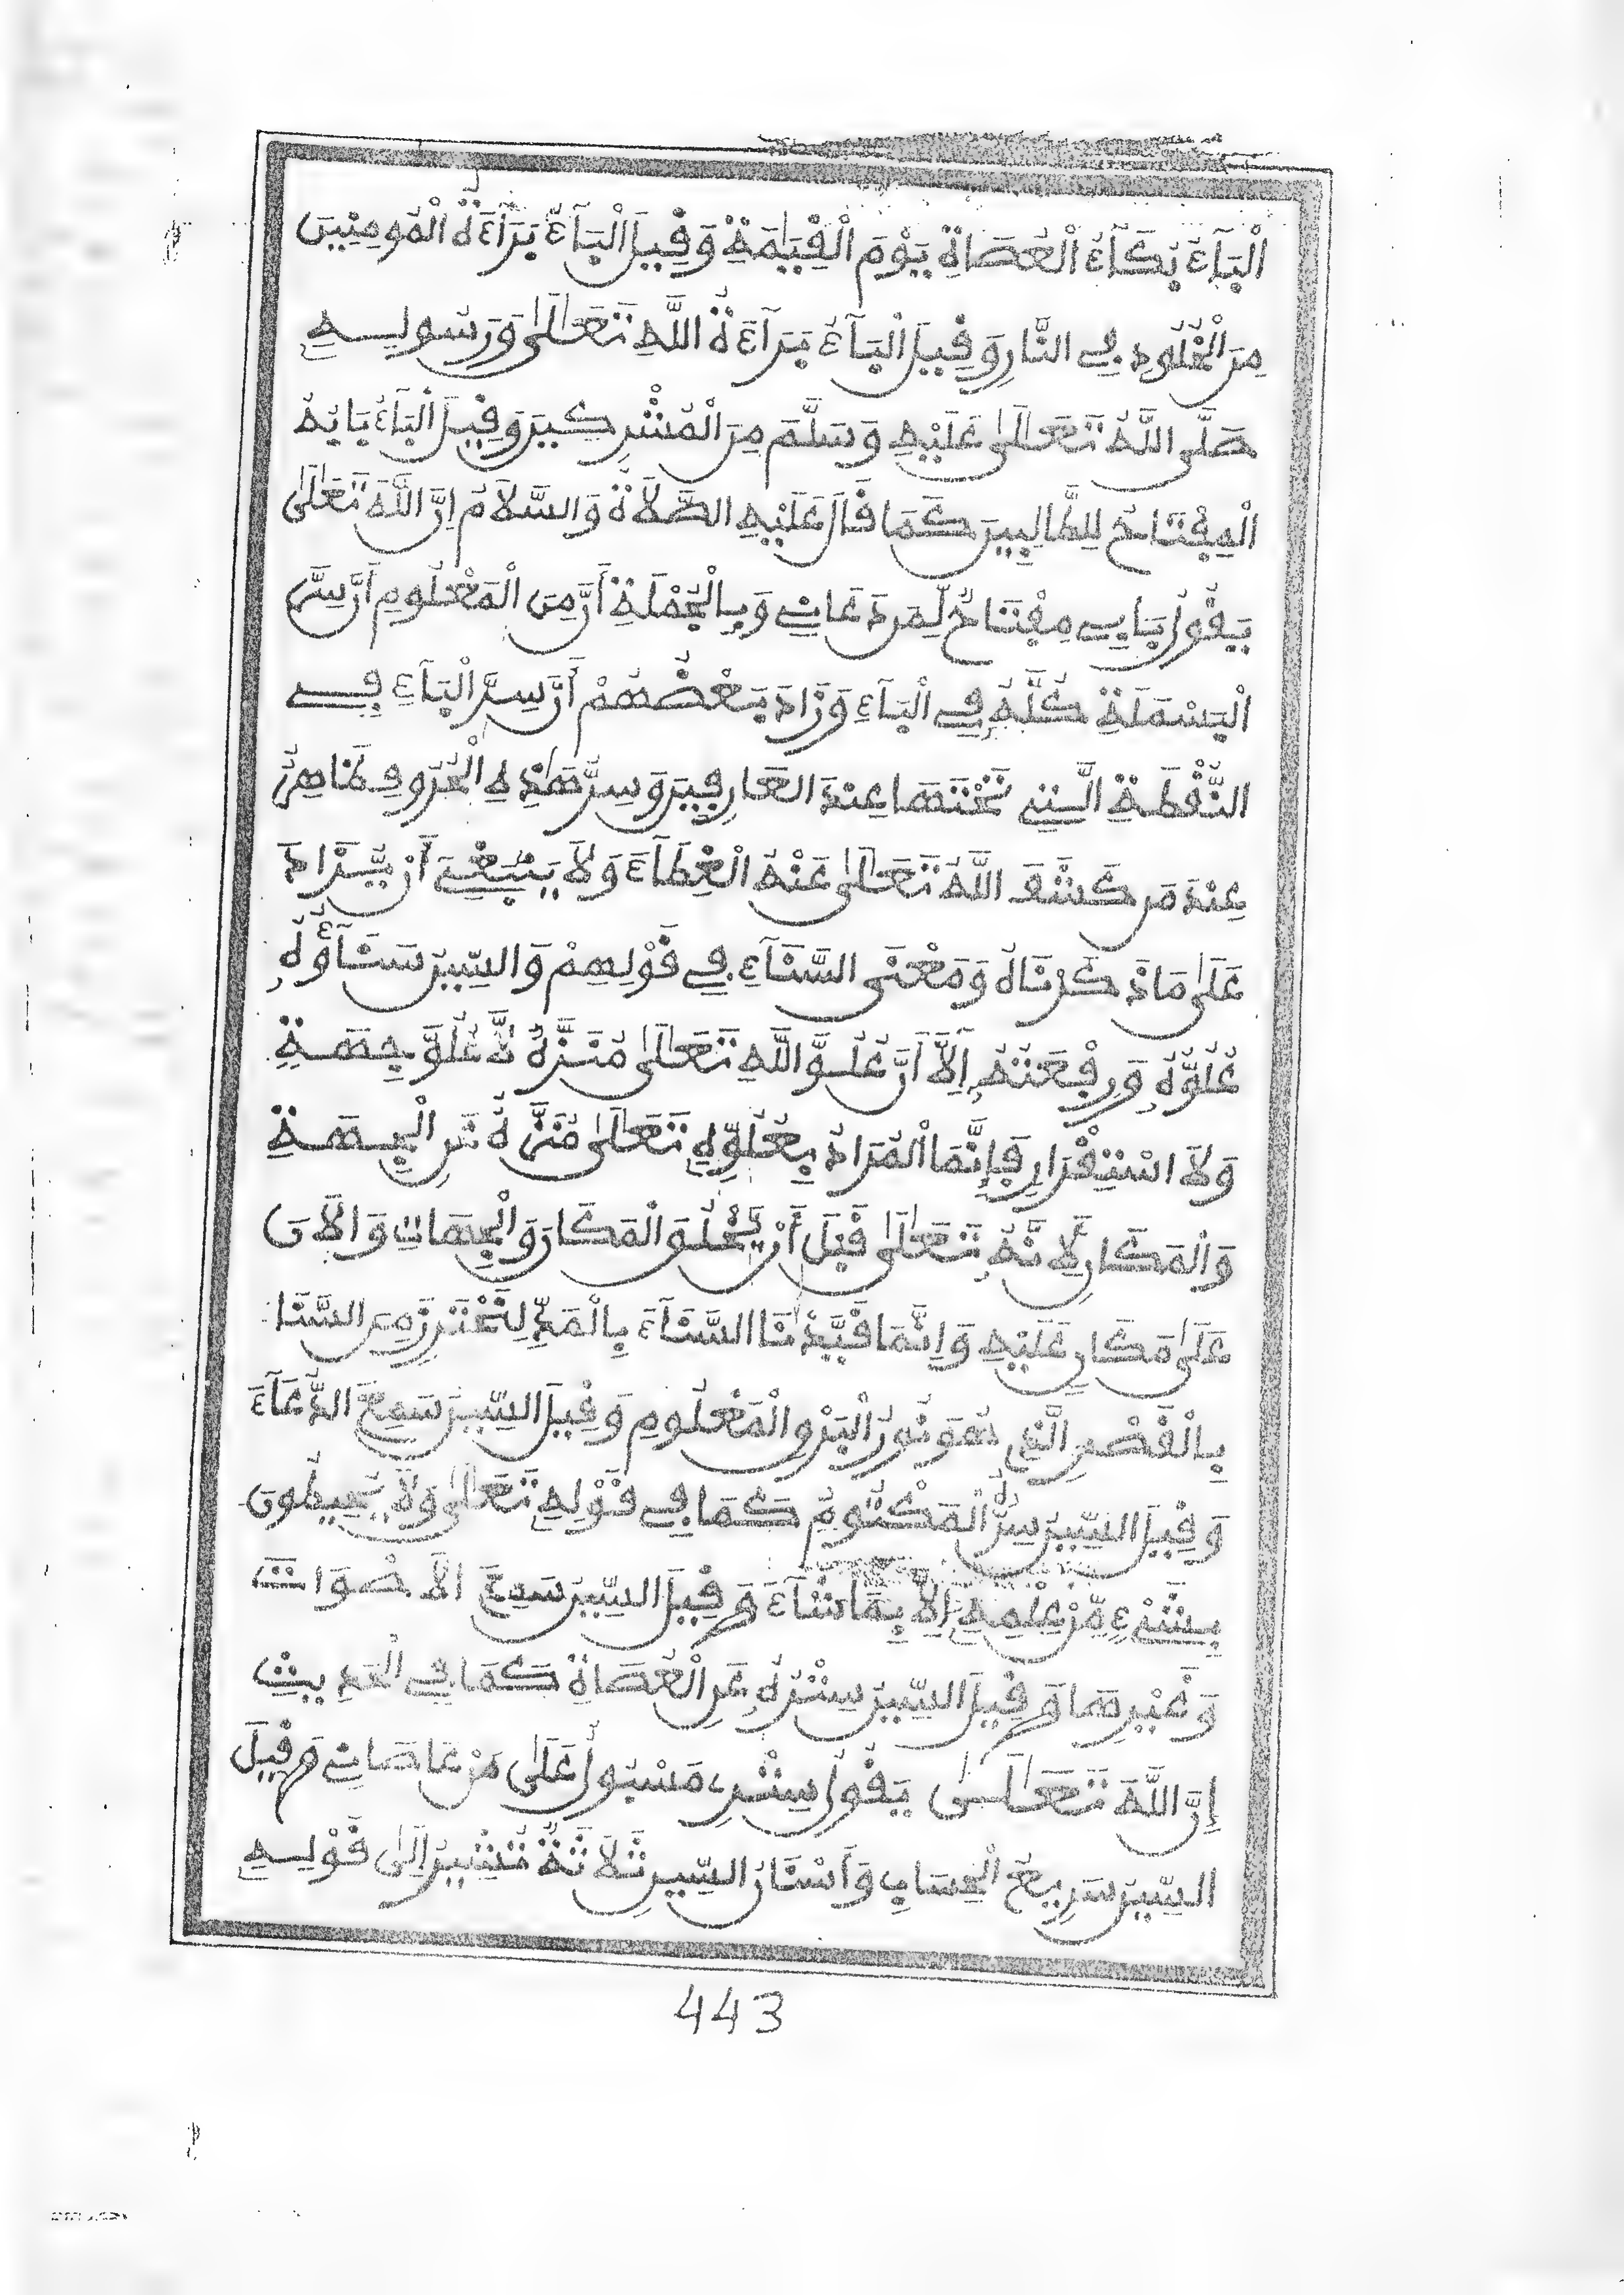 الْبَآءُ بُكَآءُ الْعُصَاةِ يَوْمَ الْقِيَٰمَةِ وَقِيلَ الْبَآءُ بَرَآءَةُ الْمُومِنِينَ
مِنَ الْخُلُودِ فِى النَّارِ وَقِيلَ الْبَآءُ بَرَآءَةُ اللَّهِ تَعَالَىٰ وَرَسُولِهِ
صَلَّى اللَّهُ تَعَالَىٰ عَلَيْهِ وَسَلَّمَ مِنَ الْمُشْرِكِينَ وَقِيلَ الْبَآءُ بَابُهُ
الْمِفْتَاحُ لِلطَّالِبِينَ كَمَا قَالَ عَلَيْهِ الصَّلَاةُ وَالسَّلَامُ إِنَّ اللَّهَ تَعَالَىٰ
يَقُولُ بَابِى مِفْتَاحٌ لِّمَن دَعَانِى وَبِالْجُمْلَةِ أَنَّ مِنَ الْمَعْلُومِ أَنَّ سِرَّ
الْبَسْمَلَةِ كُلَّهُ فِى الْبَآءِ وَزَادَ بَعْضُهُمْ أَنَّ سِرَّ الْبَآءِ فِى
النُّقْطَةِ الَّتِى تَحْتَهَا عِنْدَ الْعَارِفِينَ وَسِرُّ هَٰذِهِ الْحُرُوفِ ظَاهِرٌ
عِنْدَ مَن كَشَفَ اللَّهُ تَعَالَىٰ عَنْهُ الْغِطَآءَ وَلَا يَنْبَغِى أَنْ يُّزَادَ
عَلَىٰ مَا ذَكَرْنَاهُ وَمَعْنَى السَّنَآءِ فِى قَوْلِهِمْ وَالسِّينُ سَنَآؤُهُ
عُلُوُّهُ وَرِفْعَتُهُ إِلَّا أَنَّ عُلُوَّ اللَّهِ تَعَالَىٰ مُنَزَّهٌ عُلُوَّ جِهَةٍ
وَلَا اسْتِقْرَارٍ فَإِنَّمَا الْمُرَادُ بِعُلُوِّهِ تَعَالَىٰ تَنَزُّهُ عَنِ الْجِهَةِ
وَالْمَكَانِ لِأَنَّهُ تَعَالَىٰ قَبْلَ أَنْ يَّخْلُقَ الْمَكَانَ وَالْجِهَاتِ وَالْآنَ
عَلَىٰ مَا كَانَ عَلَيْهِ وَإِنَّمَا قَيَّدْنَا السَّنَآءَ بِالْمَدِّ لِنَحْتَرِزَ مِنَ السَّنَا
بِالْقَصْرِ الَّذِى هُوَ نُورُ الْبَرْقِ الْمَعْلُومِ وَقِيلَ السِّينُ سَمِعَ الدُّعَآءَ
وَقِيلَ السِّينُ سِرُّ الْمَكْتُومِ كَمَا فِى قَوْلِهِ تَعَالَىٰ وَلَا يُحِيطُونَ
بِشَىْءٍ مِّنْ عِلْمِهِ إِلَّا بِمَا شَآءَ وَقِيلَ السِّينُ سَمِعَ الْأَصْوَاتَ
وَغَيْرِهَا وَقِيلَ السِّينُ سِتْرُهُ عَنِ الْعُصَاةِ كَمَا فِى الْحَدِيثِ
إِنَّ اللَّهَ تَعَالَىٰ يَقُولُ سِتْرِى مَسْبُولٌ عَلَىٰ مَنْ عَاصَانِى وَقِيلَ
السِّينُ سَرِيعُ الْحِسَابِ وَأَسْنَانُ السِّينِ ثَلَاثَةٌ تُشِيرُ إِلَىٰ قَوْلِهِ
443